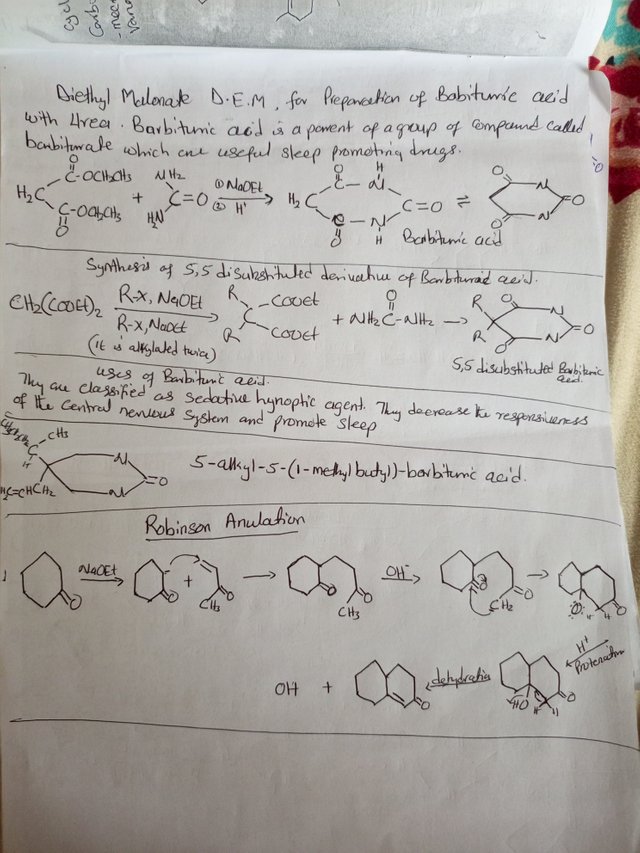 Cycl
Carbo
- mec
Vano
Diethyl Malonate D.E.M, for Preparation of Babituric acid
with Urea. Barbituric acid is a parent of a group of compound called
barbiturate which are useful sleep promoting drugs.
O
C-OCH2CH3
H2C
C-OCH2CH3
O
+
NH2
C=O
H2N
① NaOEt
② H+
H2C
O
C-N
H
C=O
C-N
O
H
⇌
O
N
O
N
O
Barbituric acid
Synthesis of 5,5 disubstituted derivative of Barbituric acid.
CH2(COOEt)2
R-X, NaOEt
R-X, NaOEt
(it is alkylated twice)
R
C
R
COOEt
COOEt
+ NH2C-NH2
O
R
R
O
N
O
N
O
5,5 disubstituted Barbituric
acid.
uses of Barbituric acid.
They are classified as sedative hynoptic agent. They decrease the responsiveness
of the central nervous system and promote sleep
CH3
C
H
H2C=CHCH2
N
O
N
5-alkyl-5-(1-methyl butyl))-barbituric acid.
Robinson Anulation
O
NaOEt
O
+
O
CH3
O
O
CH3
OH-
O
O
CH2
O
H
H
O
H+
Protenation
HO
H
H
O
dehydration
O
+
OH